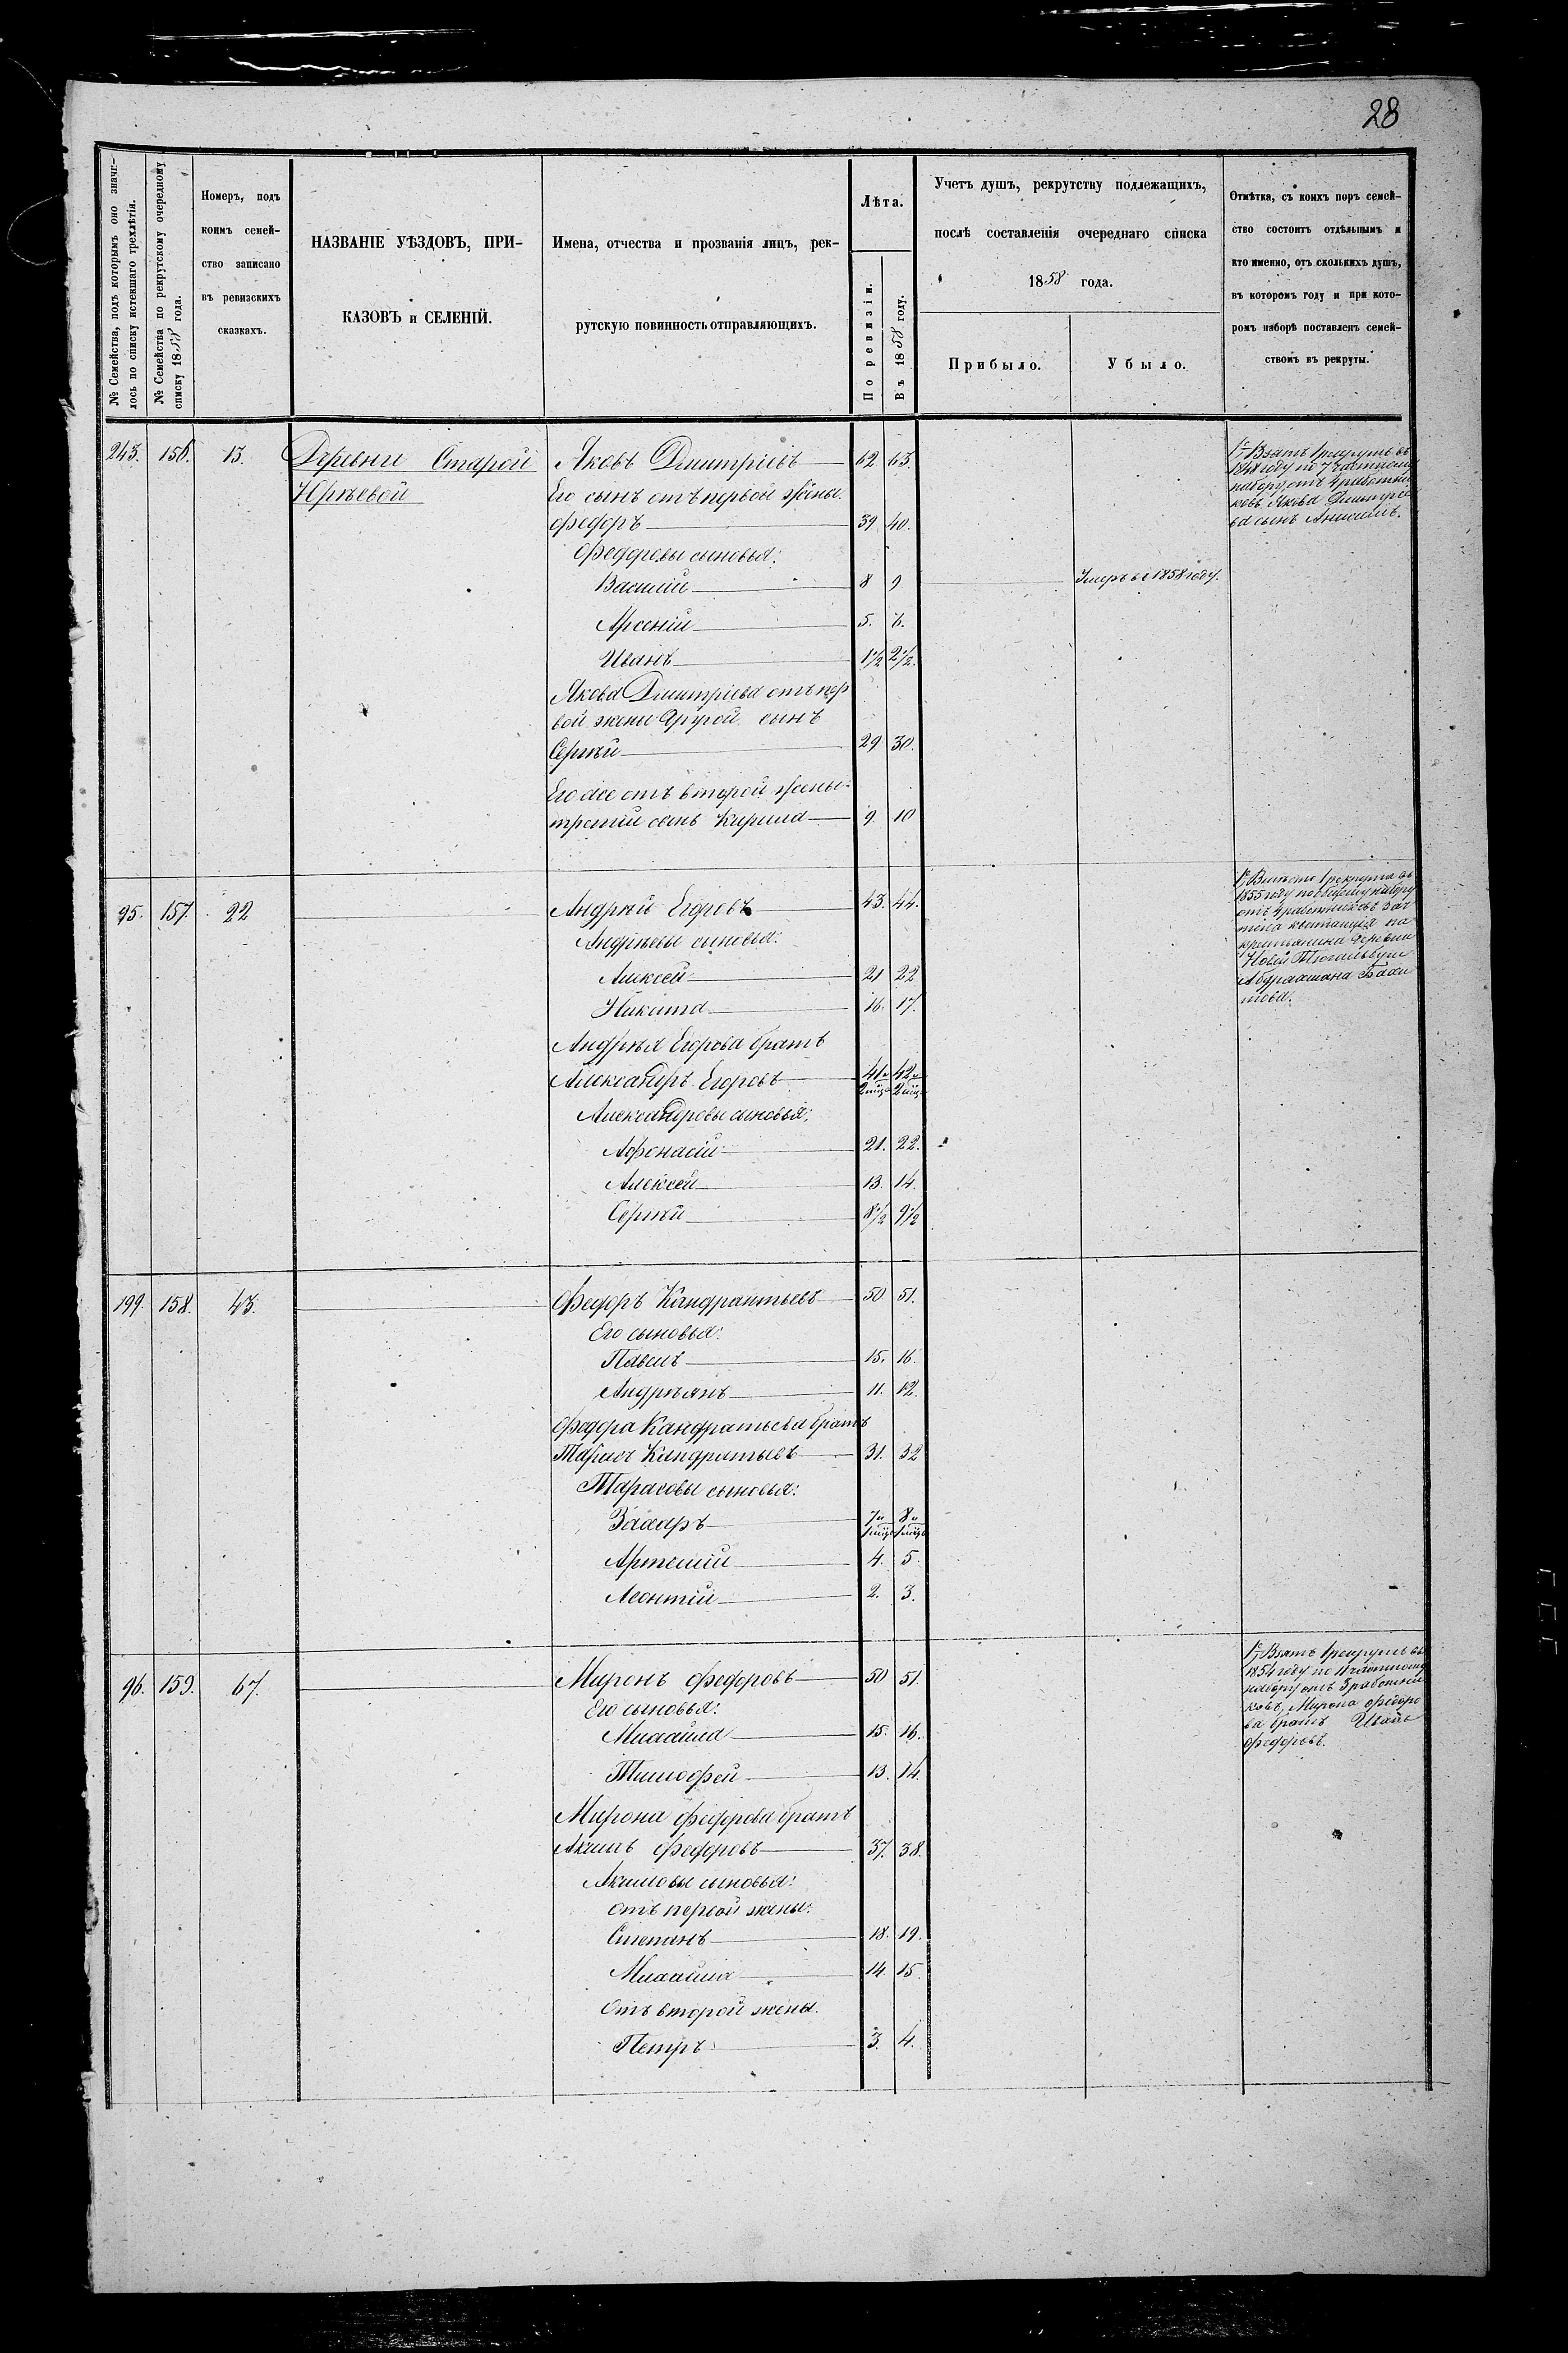 28
№ Семейства, подъ которымъ оно значи-
лось по списку истекшаго трехлѣтія.
№ Семейства по рекрутскому очередному
списку 1858 года.
Номеръ, подъ
коимъ семей-
ство записано
въ ревизскихъ
сказкахъ.
НАЗВАНІЕ УѢЗДОВЪ, ПРИ-
КАЗОВЪ и СЕЛЕНІЙ.
Имена, отчества и прозванія лицъ, рек-
рутскую повинность отправляющихъ.
Лѣта.
По ревизіи.
Въ 1858 году.
Учетъ душъ, рекрутству подлежащихъ,
послѣ составленія очереднаго списка
1858 года.
Прибыло.
Убыло.
Отмѣтка, съ коихъ поръ семей-
ство состоитъ отдѣльнымъ и
кто именно, отъ сколькихъ душъ,
въ которомъ году и при кото-
ромъ наборѣ поставленъ семей-
ствомъ въ рекруты.
243. 156. 13. Деревни Старой Яковъ Дмитріевъ 62 63.
Юрѣевой
Его сынъ отъ первой жены
Федоръ 39 40.
Федоровы сыновья:
Василій 8 9 Умеръ въ 1858 году.
Арсеній 5. 6.
Иванъ 1½ 2½.
Якова Дмитріева отъ пер
вой жены другой сынъ
Сергѣй 29 30.
Его же отъ второй жены
третій сынъ Кирила 9 10
1, Взятъ 1 рекрутъ въ
1848 году по 7 частному
набору, отъ 4 работни
ковъ Якова Дмитріе
ва сынъ Анисимъ.
95. 157. 22 Андрей Егоровъ 43. 44.
Андрѣевы сыновья:
Алексей 21 22
Никита 16. 17.
Андрѣя Егорова братъ
Александръ Егоровъ 41 и 2 мѣц. 42 и 2 мѣц.
Александровы сыновья:
Афонасій 21. 22.
Алексей 13. 14.
Сергѣй 8½ 9½
1, Вмѣсто 1 рекрута въ
1855 году по общему набору
отъ 4 работниковъ зач
тена квитанція на
крестьянина деревни
Новой
199. 158. 43. Федоръ Кандратьевъ 50 51.
Его сыновья:
Павелъ 15. 16.
Андреянъ 11. 12.
Федора Кандратьева братъ
Тарасъ Кандратьевъ 31. 32
Тарасовы сыновья:
Захаръ 7 и 1 мѣц. 8 и 1 мѣц.
Артемій 4. 5.
Леонтій 2. 3.
96. 159. 67. Миронъ Федоровъ 50 51.
Его сыновья:
Михайла 15. 16.
Тимофей 13. 14.
Мирона Федорова братъ
Акимъ Федоровъ 37. 38.
Акимовы сыновья:
отъ первой жены:
Степанъ 18. 19.
Михайла 14. 15.
отъ второй жены.
Петръ 3. 4.
1, Взятъ 1 рекрутъ въ
1854 году по 11 частному
набору отъ 3 работни
ковъ, Мирона Федоро
ва братъ Иванъ
Федоровъ.